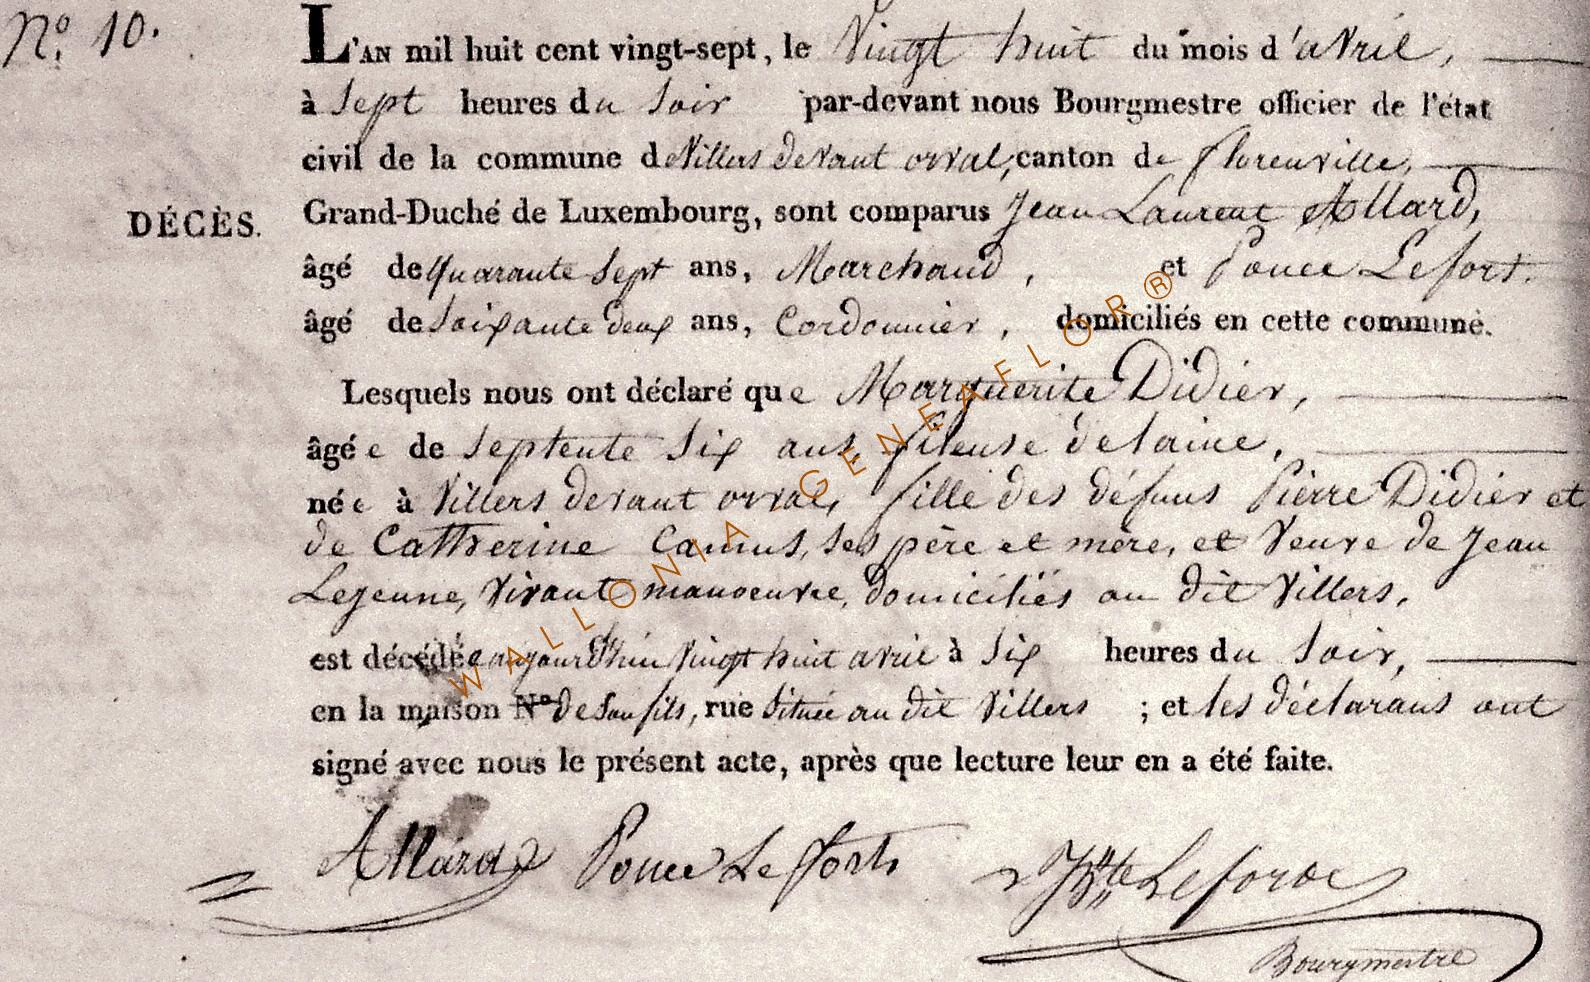 N.º 10.
L'AN mil huit cent vingt-sept, le Vingt huit du mois d'avril,
à sept heures du soir par-devant nous Bourgmestre officier de l'état
civil de la commune de Villers devant orval, canton de florenville,
DÉCÈS.
Grand-Duché de Luxembourg, sont comparus Jean Laurent Allard,
âgé de quarante sept ans, Marchand, et Ponce Lefort.
âgé de soixante deux ans, Cordonnier, domiciliés en cette commune.
Lesquels nous ont déclaré que Marguerite Didier,
âgée de septente six ans, fileuse de laine,
née à Villers devant orval, fille des défuns Pierre Didier et
de Catherine Camus, ses père et mère, et Veuve de Jean
Lejeune, vivant manoeuvre, domiciliés au dit Villers,
est décédée aujourd'hui vingt huit avril à six heures du soir,
en la maison Nº de son fils, rue située au dit Villers ; et les déclarans ont
signé avec nous le présent acte, après que lecture leur en a été faite.
Allard Ponce Lefort Lefort
Bourgmestre
WALLONIA GENEAFLOR®